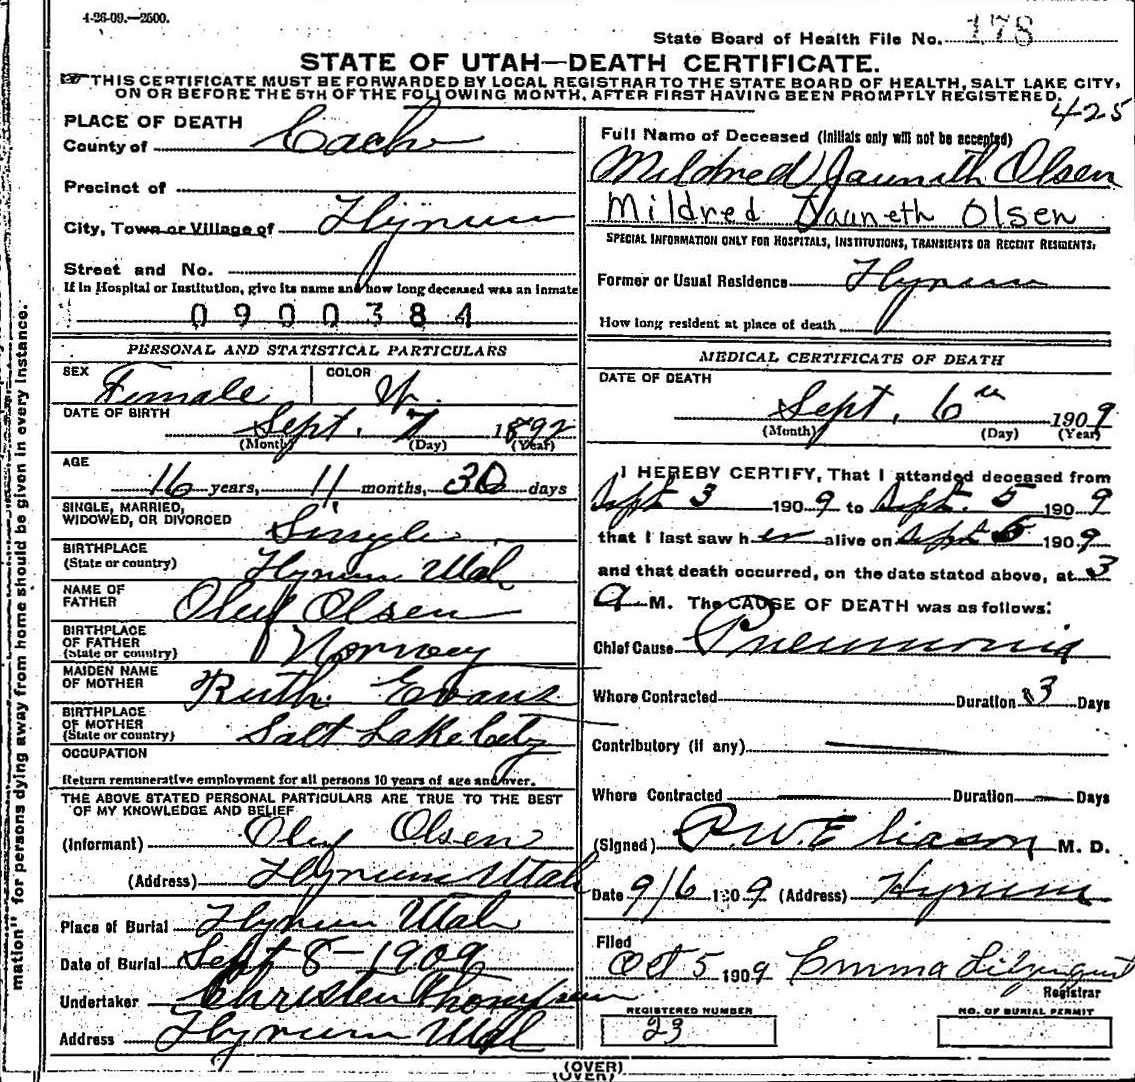 4-26-09.—2500.
State Board of Health File No. 178
STATE OF UTAH—DEATH CERTIFICATE.
THIS CERTIFICATE MUST BE FORWARDED BY LOCAL REGISTRAR TO THE STATE BOARD OF HEALTH, SALT LAKE CITY,
ON OR BEFORE THE 5TH OF THE FOLLOWING MONTH, AFTER FIRST HAVING BEEN PROMPTLY REGISTERED.
425
PLACE OF DEATH
County of Cache
Precinct of
City, Town or Village of Hyrum
Street and No.
If in Hospital or Institution, give its name and how long deceased was an inmate
0900384
PERSONAL AND STATISTICAL PARTICULARS
SEX Female COLOR W.
DATE OF BIRTH
Sept. 7 1892
(Month) (Day) (Year)
AGE
16 years, 11 months, 30 days
SINGLE, MARRIED,
WIDOWED, OR DIVORCED Single
BIRTHPLACE
(State or country) Hyrum Utah
NAME OF
FATHER Oluf Olsen
BIRTHPLACE
OF FATHER
(State or country) Norway
MAIDEN NAME
OF MOTHER Ruth Evans
BIRTHPLACE
OF MOTHER
(State or country) Salt Lake City
OCCUPATION
Return remunerative employment for all persons 10 years of age and over.
THE ABOVE STATED PERSONAL PARTICULARS ARE TRUE TO THE BEST
OF MY KNOWLEDGE AND BELIEF
(Informant) Oluf Olsen
(Address) Hyrum Utah
Place of Burial Hyrum Utah
Date of Burial Sept 8 - 1909
Undertaker Christen Thompson
Address Hyrum Utah
Full Name of Deceased (Initials only will not be accepted)
Mildred Jauneth Olsen
Mildred Jauneth Olsen
SPECIAL INFORMATION ONLY FOR HOSPITALS, INSTITUTIONS, TRANSIENTS OR RECENT RESIDENTS.
Former or Usual Residence Hyrum
How long resident at place of death
MEDICAL CERTIFICATE OF DEATH
DATE OF DEATH
Sept. 6th 1909
(Month) (Day) (Year)
I HEREBY CERTIFY, That I attended deceased from
Sept 3 1909 to Sept. 5 1909
that I last saw her alive on Sept 5 1909
and that death occurred, on the date stated above, at 3
a M. The CAUSE OF DEATH was as follows:
Chief Cause Pneumonia
Where Contracted Duration 3 Days
Contributory (if any)
Where Contracted Duration Days
(Signed) P. W. Eliason M. D.
Date 9/6 1909 (Address) Hyrum
Filed
Oct 5 1909 Emma Liljenquist
Registrar
REGISTERED NUMBER
23
NO. OF BURIAL PERMIT
(OVER)
(OVER)
mation" for persons dying away from home should be given in every instance.